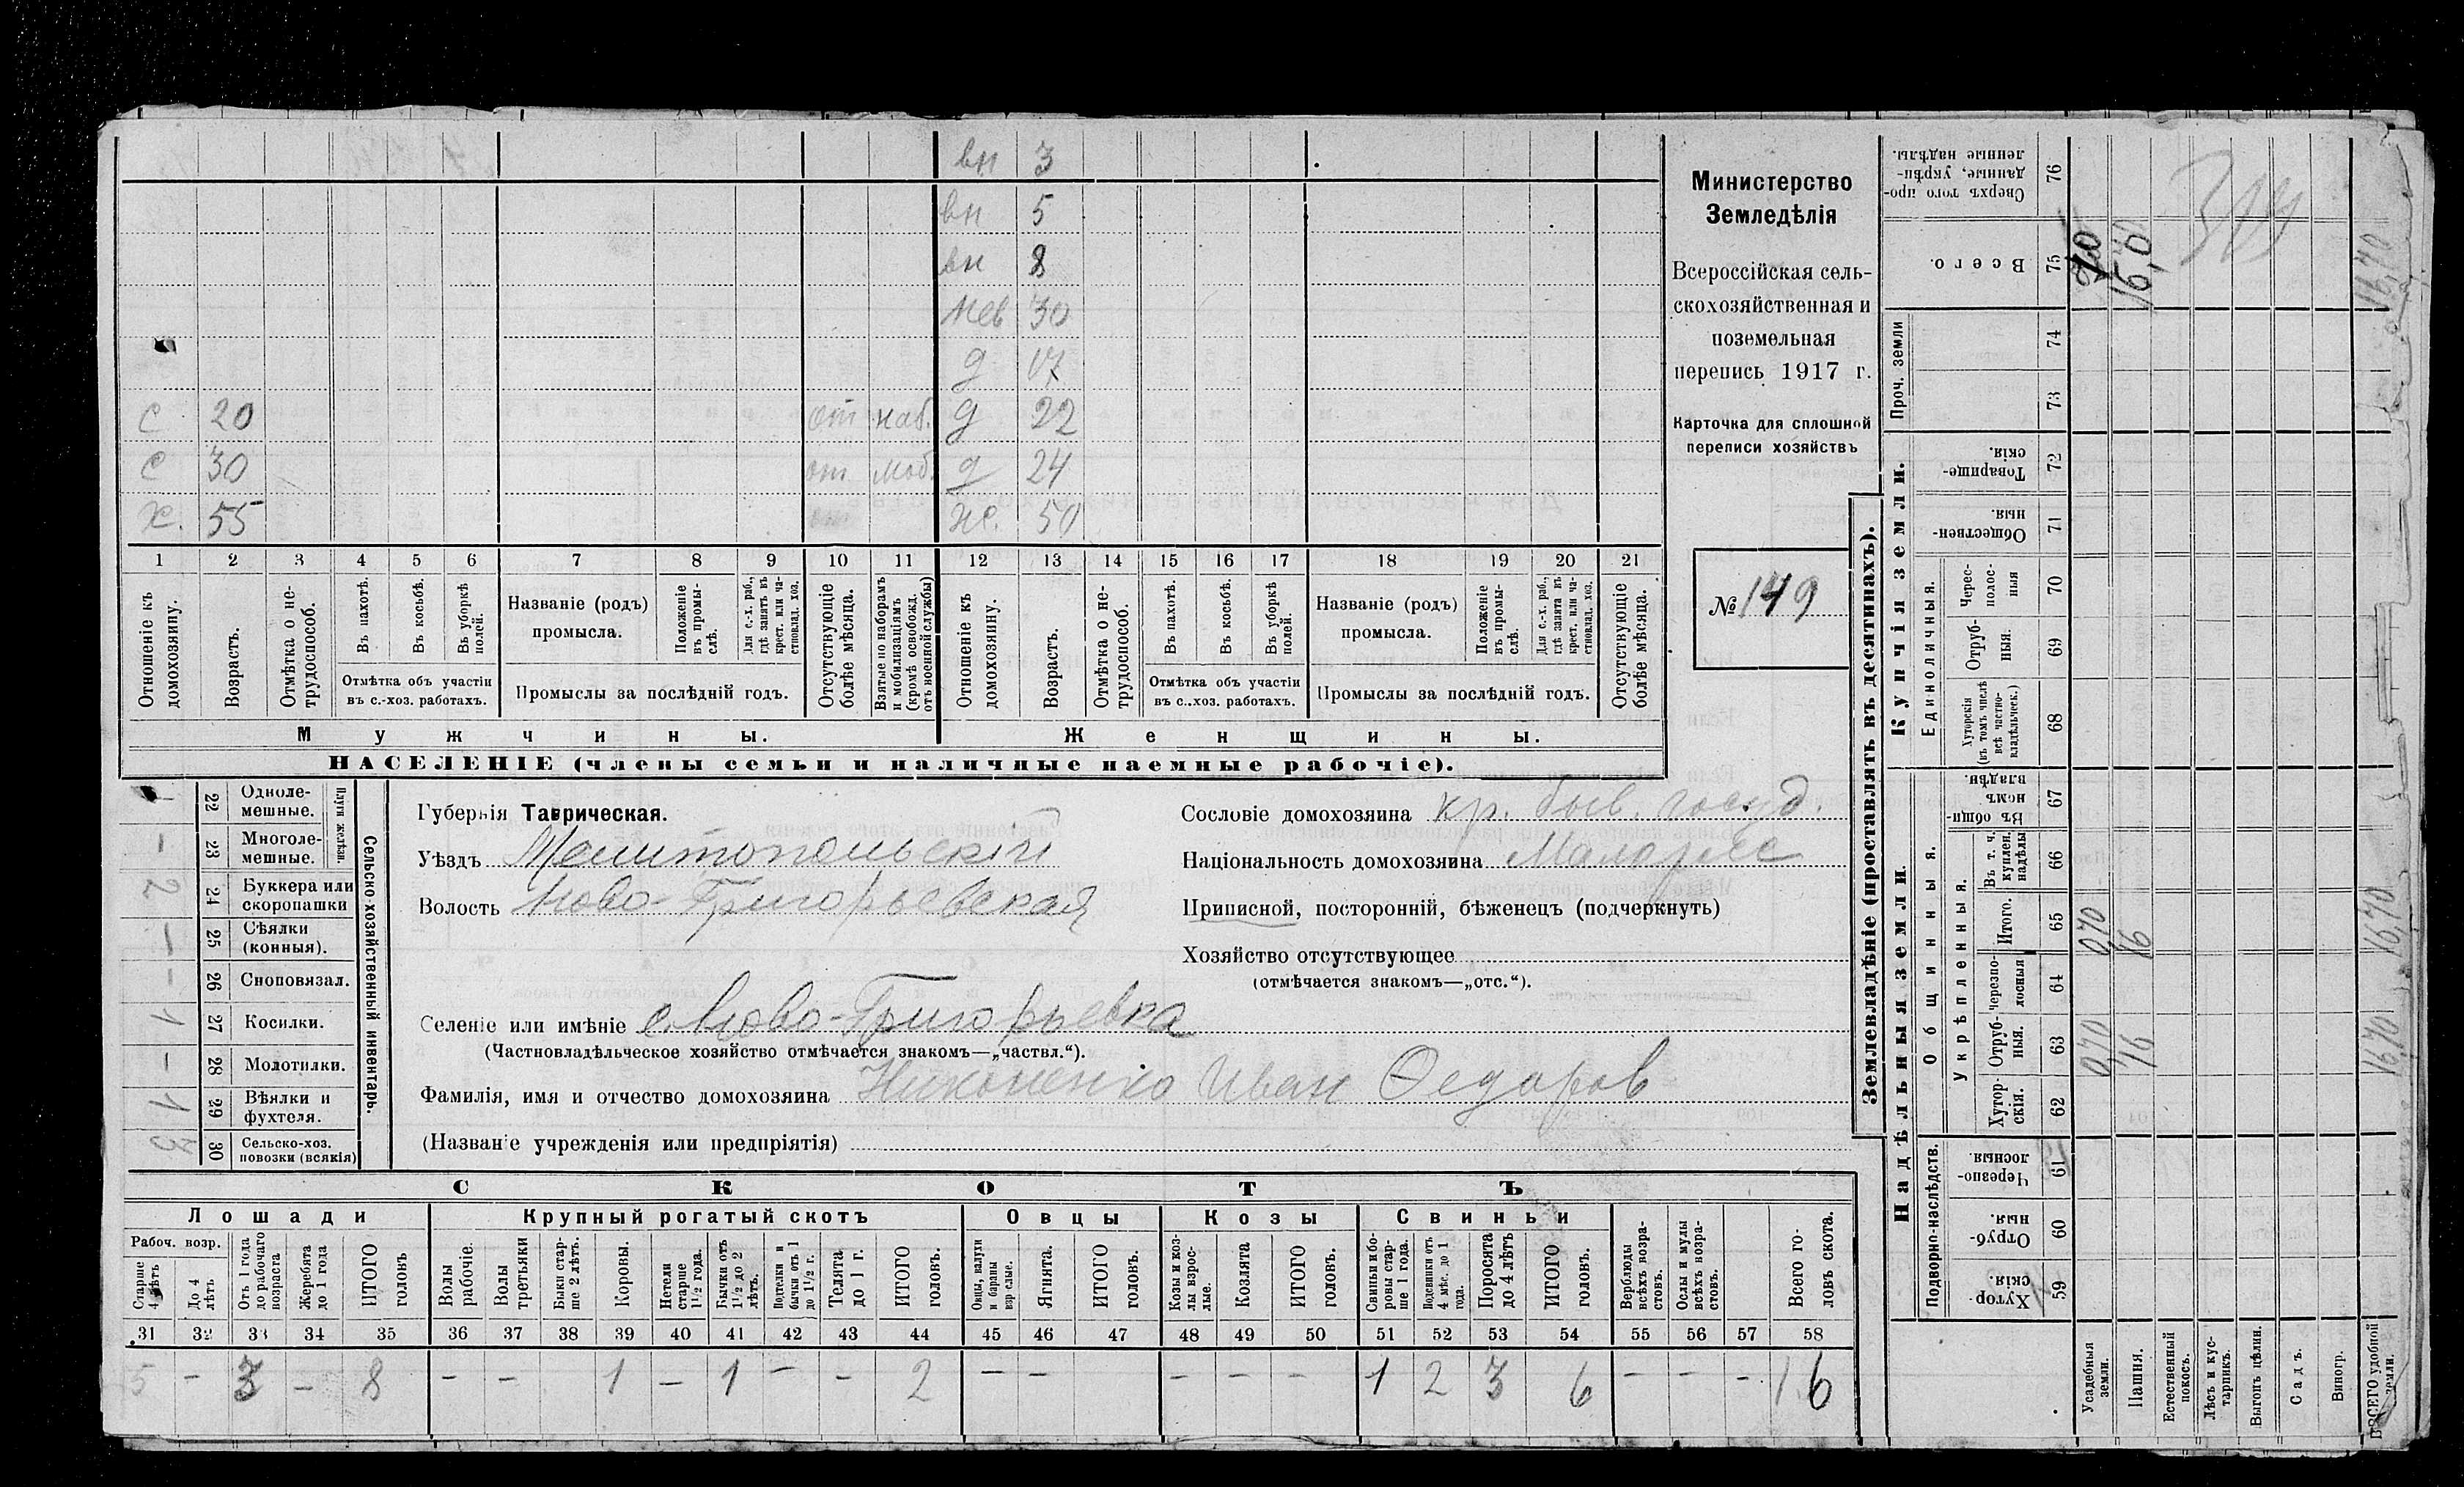 вн 3
вн 5
вн 8
нев 30
д 17
С 20 от наб. д 22
С 30 от моб. д 24
Х. 55 от ж. 50
1 2 3 4 5 6 7 8 9 10 11 12 13 14 15 16 17 18 19 20 21
Отношеніе къ домохозяину.
Возрастъ.
Отмѣтка о не-трудоспособ.
Въ пахотѣ.
Въ косьбѣ.
Въ уборкѣ полей.
Отмѣтка объ участіи въ с.-хоз. работахъ.
Названіе (родъ) промысла.
Положеніе въ промы-слѣ.
Для с.-х. раб., гдѣ занятъ въ крест. или ча-стновлад. хоз.
Промыслы за послѣдній годъ.
Отсутствующіе болѣе мѣсяца.
Взятые по наборамъ и мобилизаціямъ (кромѣ освобожд. отъ военной службы)
Отношеніе къ домохозяину.
Возрастъ.
Отмѣтка о не-трудоспособ.
Въ пахотѣ.
Въ косьбѣ.
Въ уборкѣ полей.
Отмѣтка объ участіи въ с..хоз. работахъ.
Названіе (родъ) промысла.
Положеніе въ промы-слѣ.
Для с.-х. раб., гдѣ занята въ крест. или ча-стновлад. хоз.
Промыслы за послѣдній годъ.
Отсутствующіе болѣе мѣсяца.
Мужчины. Женщины.
НАСЕЛЕНІЕ (члены семьи и наличные наемные рабочіе).
Министерство
Земледѣлія
Всероссійская сель-
скохозяйственная и
поземельная
перепись 1917 г.
Карточка для сплошной
переписи хозяйствъ
№ 149
Сельско-хозяйственный инвентарь.
Плуги желѣзн.
22 Однолемешные.
– 23 Многолемешные.
2 24 Буккера или скоропашки
– 25 Сѣялки (конныя).
– 26 Сноповязал.
1 27 Косилки.
– 28 Молотилки.
1 29 Вѣялки и фухтеля.
3 30 Сельско-хоз. повозки (всякія)
Губернія Таврическая.
Уѣздъ Мелитопольскій
Волость Ново-Григорьевская
Селеніе или имѣніе с. Ново-Григорьевка
(Частновладѣльческое хозяйство отмѣчается знакомъ—„частвл.“).
Фамилія, имя и отчество домохозяина Никоненко Иван Федоров
(Названіе учрежденія или предпріятія)
Сословіе домохозяина кр. быв. госуд.
Національность домохозяина Малорос
Приписной, посторонній, бѣженец (подчеркнуть)
Хозяйство отсутствующее
(отмѣчается знакомъ—„отс.“).
СКОТЪ
Лошади Крупный рогатый скотъ Овцы Козы Свиньи
Рабоч. возр.
Старше 4 лѣтъ
До 4 лѣтъ
Отъ 1 года до рабочаго возраста
Жеребята до 1 года
ИТОГО головъ
Волы рабочіе.
Волы третьяки
Быки стар-ше 2 лѣтъ.
Коровы.
Нетели старше 1 1/2 года.
Бычки отъ 1 1/2 до 2 лѣтъ.
Подтелки и бычки отъ 1 до 1 1/2 г.
Телята до 1 г.
ИТОГО головъ.
Овцы, валухи и бараны взрослые.
Ягнята.
ИТОГО головъ.
Козы и коз-лы взрос-лые.
Козлята
ИТОГО головъ.
Свиньи и бо-ровы стар-ше 1 года.
Подсвинки отъ 4 мѣс. до 1 года.
Поросята до 4 лѣтъ
ИТОГО головъ.
Верблюды всѣхъ возра-стовъ.
Ослы и мулы всѣхъ возра-стовъ.
Всего го-ловъ скота.
31 32 33 34 35 36 37 38 39 40 41 42 43 44 45 46 47 48 49 50 51 52 53 54 55 56 57 58
5 – 3 – 8 – – 1 – 1 – – 2 – – – – – 1 2 3 6 – – – 16
Землевладѣніе (проставлять въ десятинахъ).
Надѣльныя земли. Купчія земли. Проч. земли
Подворно-наслѣдств.
Общинныя.
Укрѣпленныя.
Единоличныя.
Хутор-скія. 59
Отруб-ныя. 60
Черезпо-лосныя. 61
Хутор-скія. 62
Отруб-ныя. 63 0,70 16 16,70
Черезпо-лосныя 64
Итого. 65 0,70 16 16,70
Въ т. ч. куплен. надѣлы 66
Въ общин-номъ владѣн. 67
Хуторскія (въ томъ числѣ всѣ частно-владѣльческ.) 68
Отруб-ныя. 69
Черес-полос-ныя 70
Обществен-ныя. 71
Товарище-скія. 72
73
74
Всего. 75 16,0 16,70
Сверхъ того про-данные, укрѣп-ленные надѣлы. 76
Усадебныя земли.
Пашня.
Естественный покосъ.
Лѣсъ и кус-тарникъ.
Выгонъ цѣлин.
Садъ.
Виногр.
ВСЕГО удобной земли.